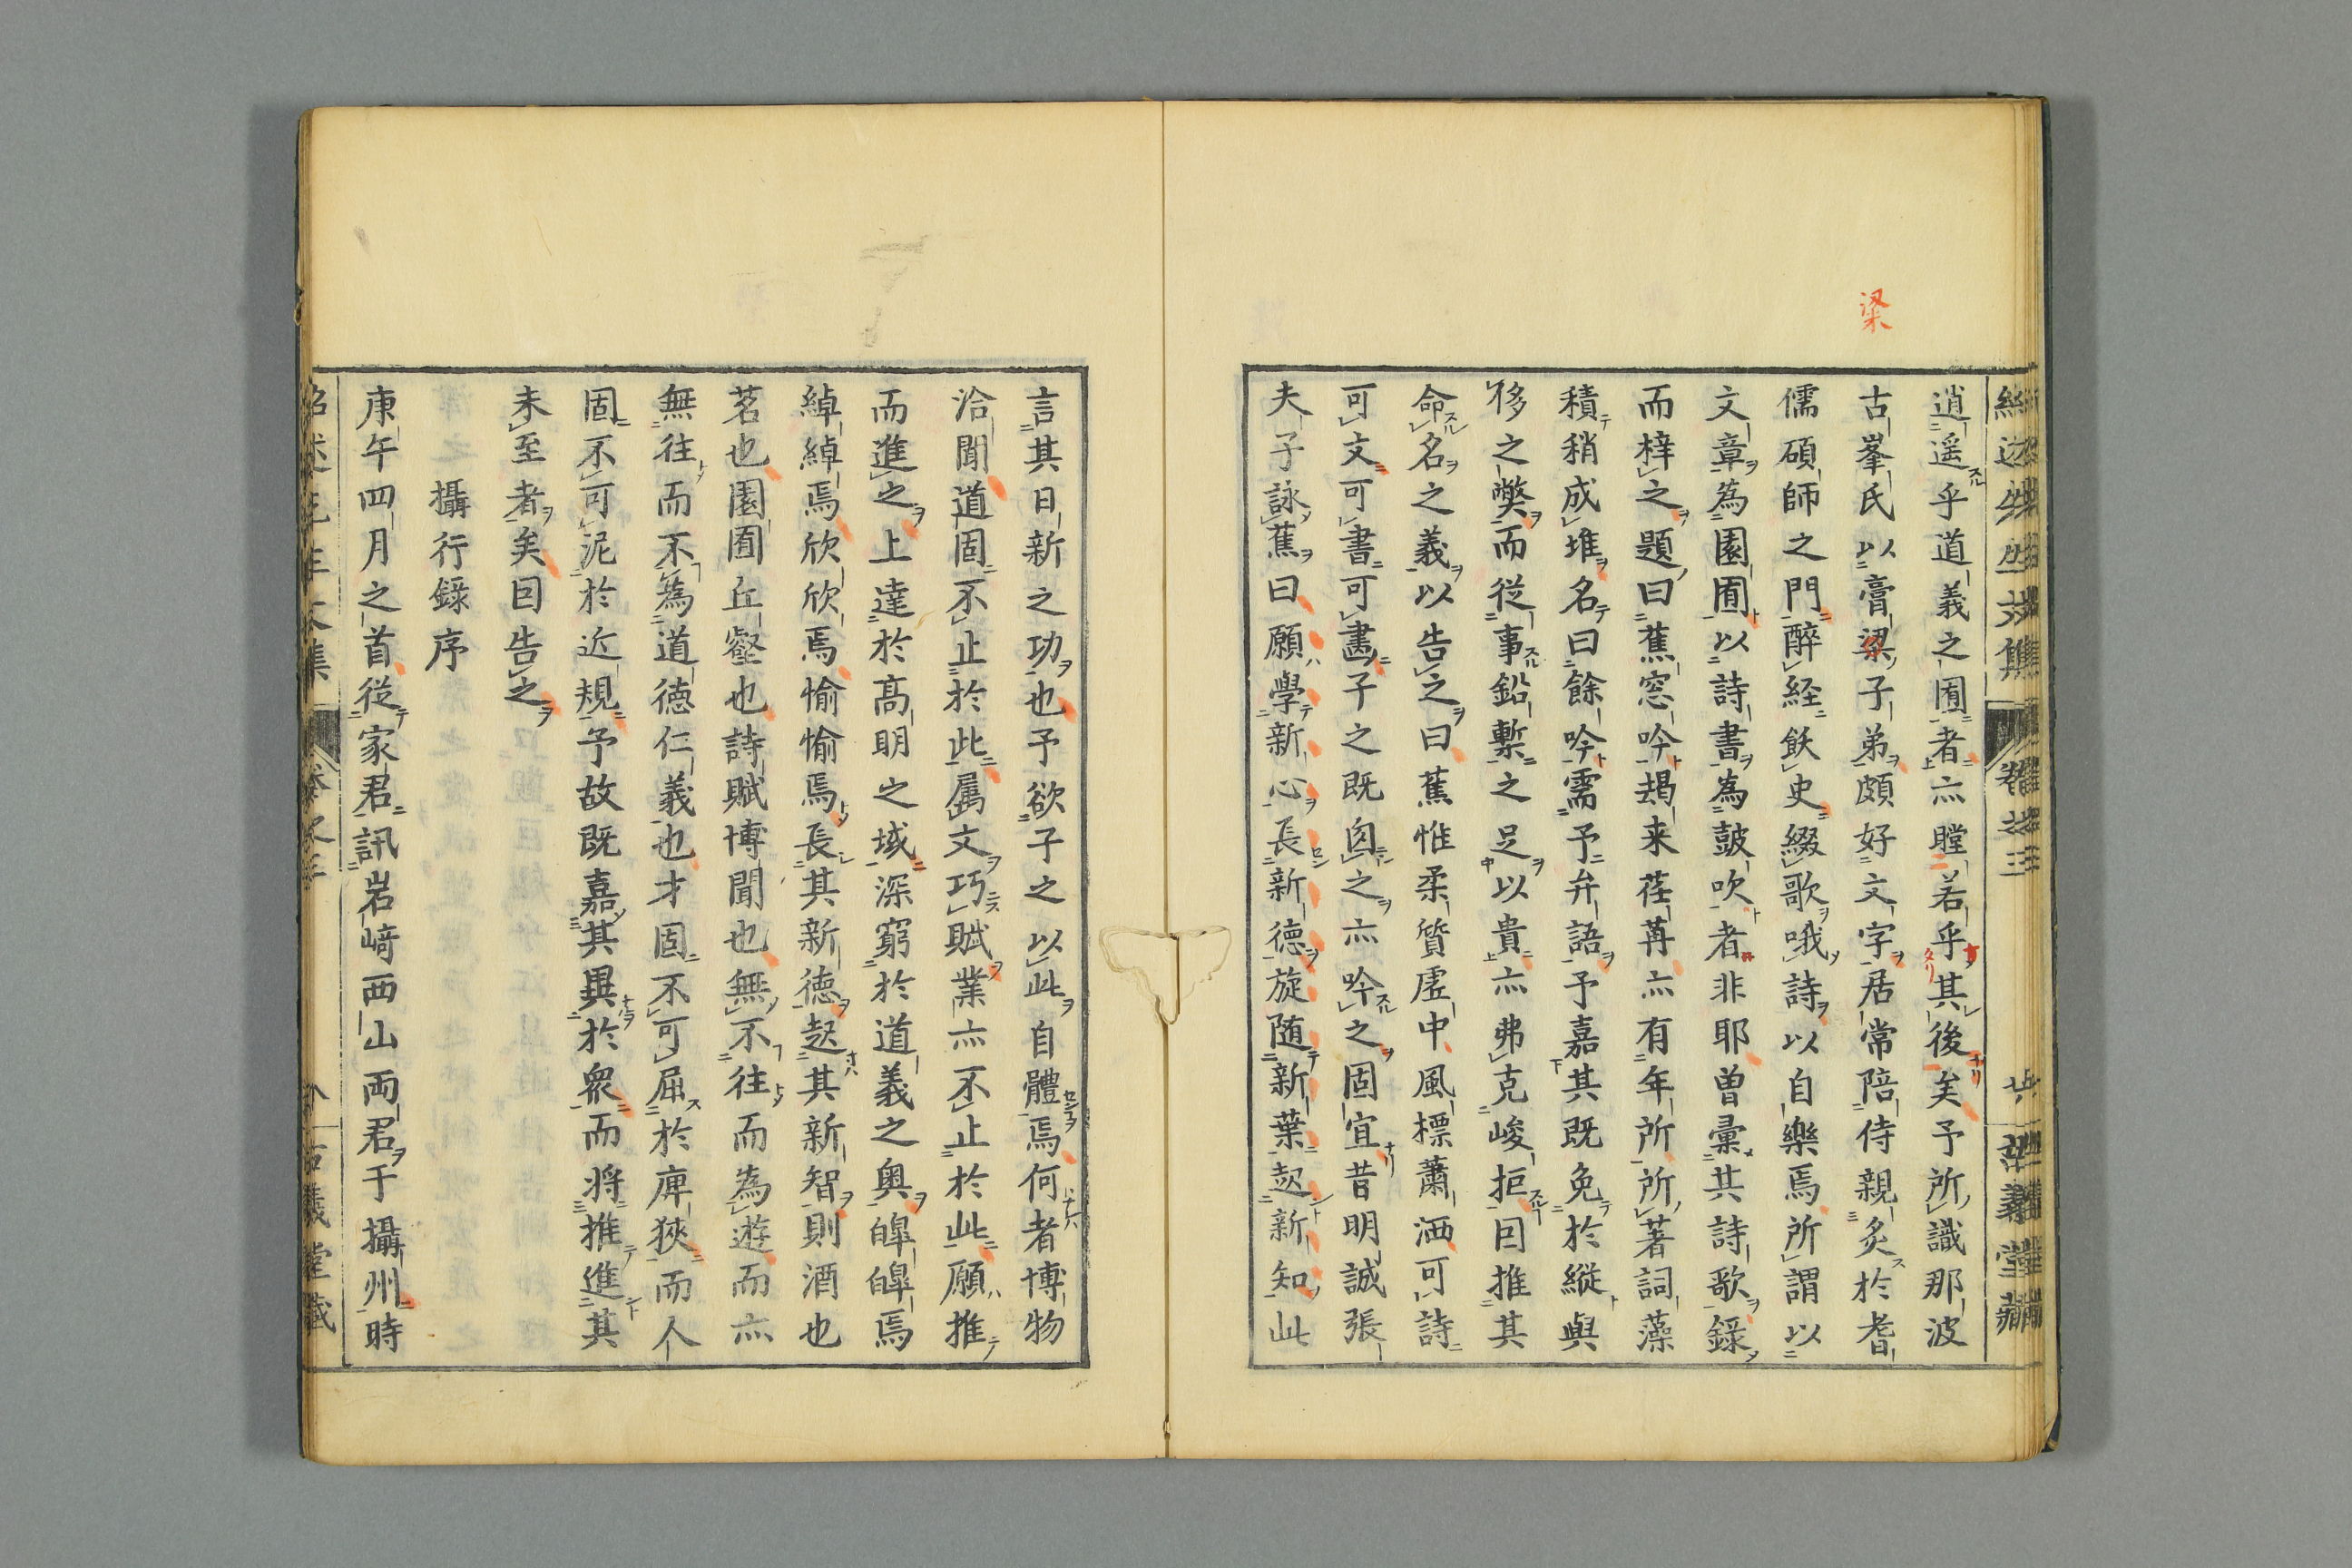 梁
逍遥乎道義之囿者亦瞠若乎其後矣予所識那波
古峯氏以膏梁子弟頗好文字居常陪侍親炙於耆
儒碩師之門醉経飫史綴歌哦詩以自樂焉所謂以
文章為園囿以詩書為鼓吹者非耶曽彙其詩歌錄
而梓之題曰蕉窓吟朅来荏苒亦有年所所著詞藻
積稍成堆名曰餘吟需予弁語予嘉其既免於縦與
侈之獘而従事鉛槧之足以貴亦弗克峻拒囙推其
命名之義以告之曰蕉惟柔質虗中風標蕭洒可詩
可文可書可畵子之既囪之亦吟之固宜昔明誠張
夫子詠蕉曰願學新心長新徳旋随新葉起新知此
言其日新之功也予欲子之以此自體焉何者博物
洽聞道固不止於此属文巧賦業亦不止於此願推
而進之上達於高明之域深窮於道義之奥皥皥焉
綽綽焉欣欣焉愉愉焉長其新徳起其新智則酒也
茗也園囿丘壑也詩賦博聞也無不往而為遊而亦
無往而不為道徳仁義也才固不可屈於庳狹而人
固不可泥於近規予故既嘉其異於衆而将推進其
未至者矣囙告之
攝行錄序
庚午四月之首従家君訊岩﨑西山両君于攝州時